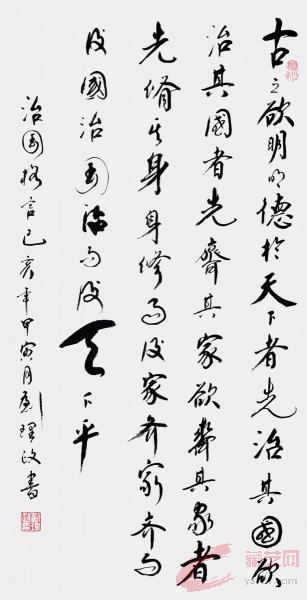 古之欲明明德於天下者先治其國欲
治其國者先齊其家欲齊其家者
先脩其身身修而後家齐家齐而
後國治国治而後天下平
治国格言己亥年甲寅月劉理政書